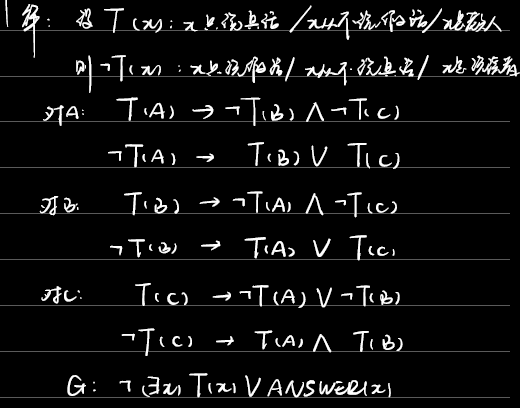 解: 设 T(x): x只说真话 / x从不说假话 / x是老实人
则 ¬T(x): x只说假话 / x从不说真话 / x是说谎者
对A: T(A) → ¬T(B) ∧ ¬T(C)
¬T(A) → T(B) ∨ T(C)
对B: T(B) → ¬T(A) ∧ ¬T(C)
¬T(B) → T(A) ∨ T(C)
对C: T(C) → ¬T(A) ∨ ¬T(B)
¬T(C) → T(A) ∧ T(B)
G: ¬(∃x) T(x) ∨ ANSWER(x)